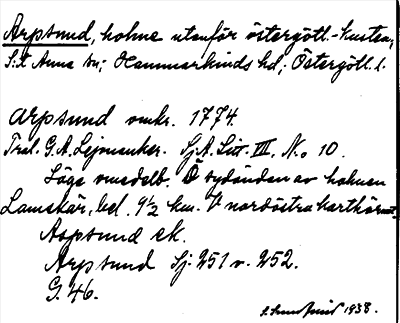 Arpsund, holme utanför östergötl.-kusten,
S:t Anna sn; Hammarkinds hd; Östergötl. l.
Arpsund omkr. 1774.
Trol. G. A. Lejonanker. Sj. A. Litt. III, No 10.
Läge omedelb. Ö sydänden av holmen
Lamskär, bel. 9½ km. V nordöstra karthörnet.
Aspsund ek.
Arpsund Sj: 251 v. 252.
G. 46.
1938.